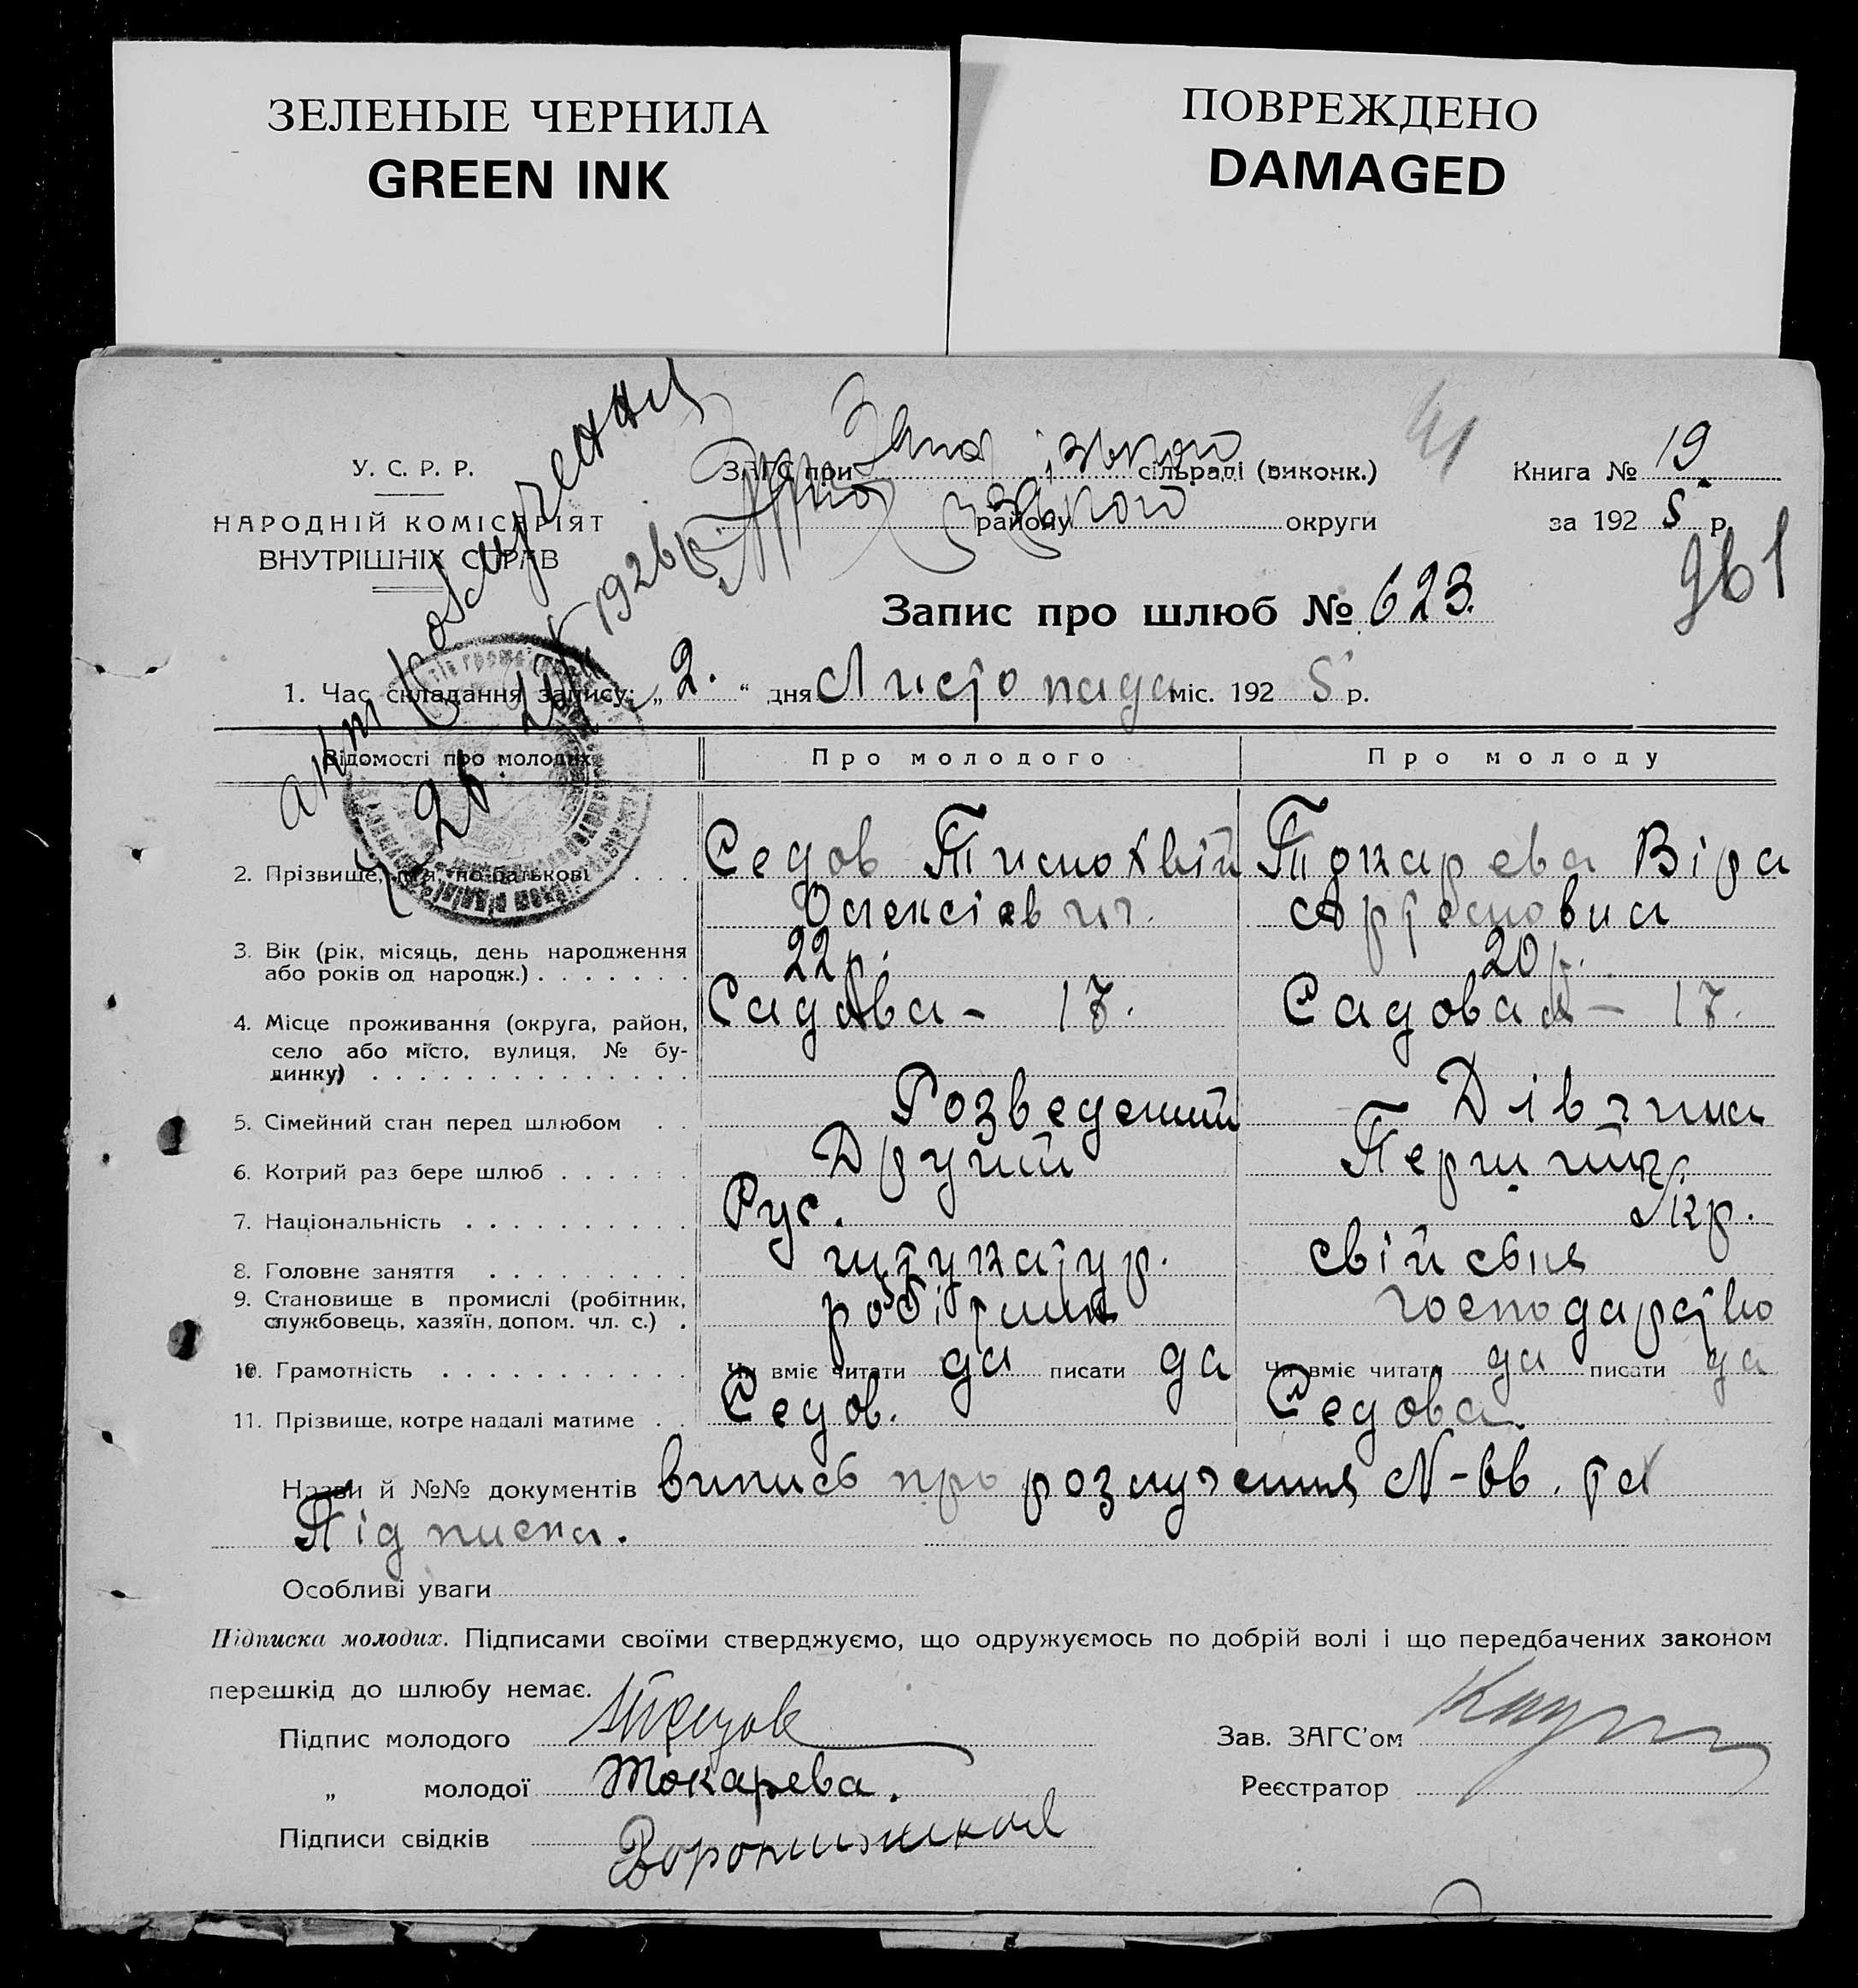 ЗЕЛЕНЫЕ ЧЕРНИЛА
GREEN INK
ПОВРЕЖДЕНО
DAMAGED
У. С. Р. Р.
НАРОДНІЙ КОМІСАРІЯТ
ВНУТРІШНІХ СПРАВ
ЗАГС при сільраді (виконк.)
району округи
41
Книга № 19
за 192 5 р.
961
Запис про шлюб № 623.
акт розлучення
26 1926 р.
1. Час складання запису: „ 2. “ дня Листопада міс. 192 5 р.
Відомості про молодих
Про молодого
Про молоду
2. Прізвище, ім'я, по батькові . . .
Седов Тимохвій
Олексієвич.
Токарева Віра
Артемовна
3. Вік (рік, місяць, день народження
або років од народж.) . . . . . . .
22 р.
20 р.
4. Місце проживання (округа, район,
село або місто, вулиця, № бу-
динку) . . . . . . . . . . . . . .
Садова - 17.
Садовая - 17.
5. Сімейний стан перед шлюбом . .
Розведений
Дівчина
6. Котрий раз бере шлюб . . . . . .
Другий
Перший
7. Національність . . . . . . . . . .
Рус.
Укр.
8. Головне заняття . . . . . . . . .
штукатур.
свійське
9. Становище в промислі (робітник,
службовець, хазяїн, допом. чл. с.) .
робітник
господарство
10. Грамотність . . . . . . . . . . .
Чи вміє читати да писати да
Чи вміє читати да писати да
11. Прізвище, котре надалі матиме . .
Седов.
Седова.
Назви й №№ документів випись про розлучення N-66. та
Підписка.
Особливі уваги
Підписка молодих. Підписами своїми стверджуємо, що одружуємось по добрій волі і що передбачених законом
перешкід до шлюбу немає.
Підпис молодого Седов
Зав. ЗАГС'ом
„ молодої Токарева.
Реєстратор
Підписи свідків